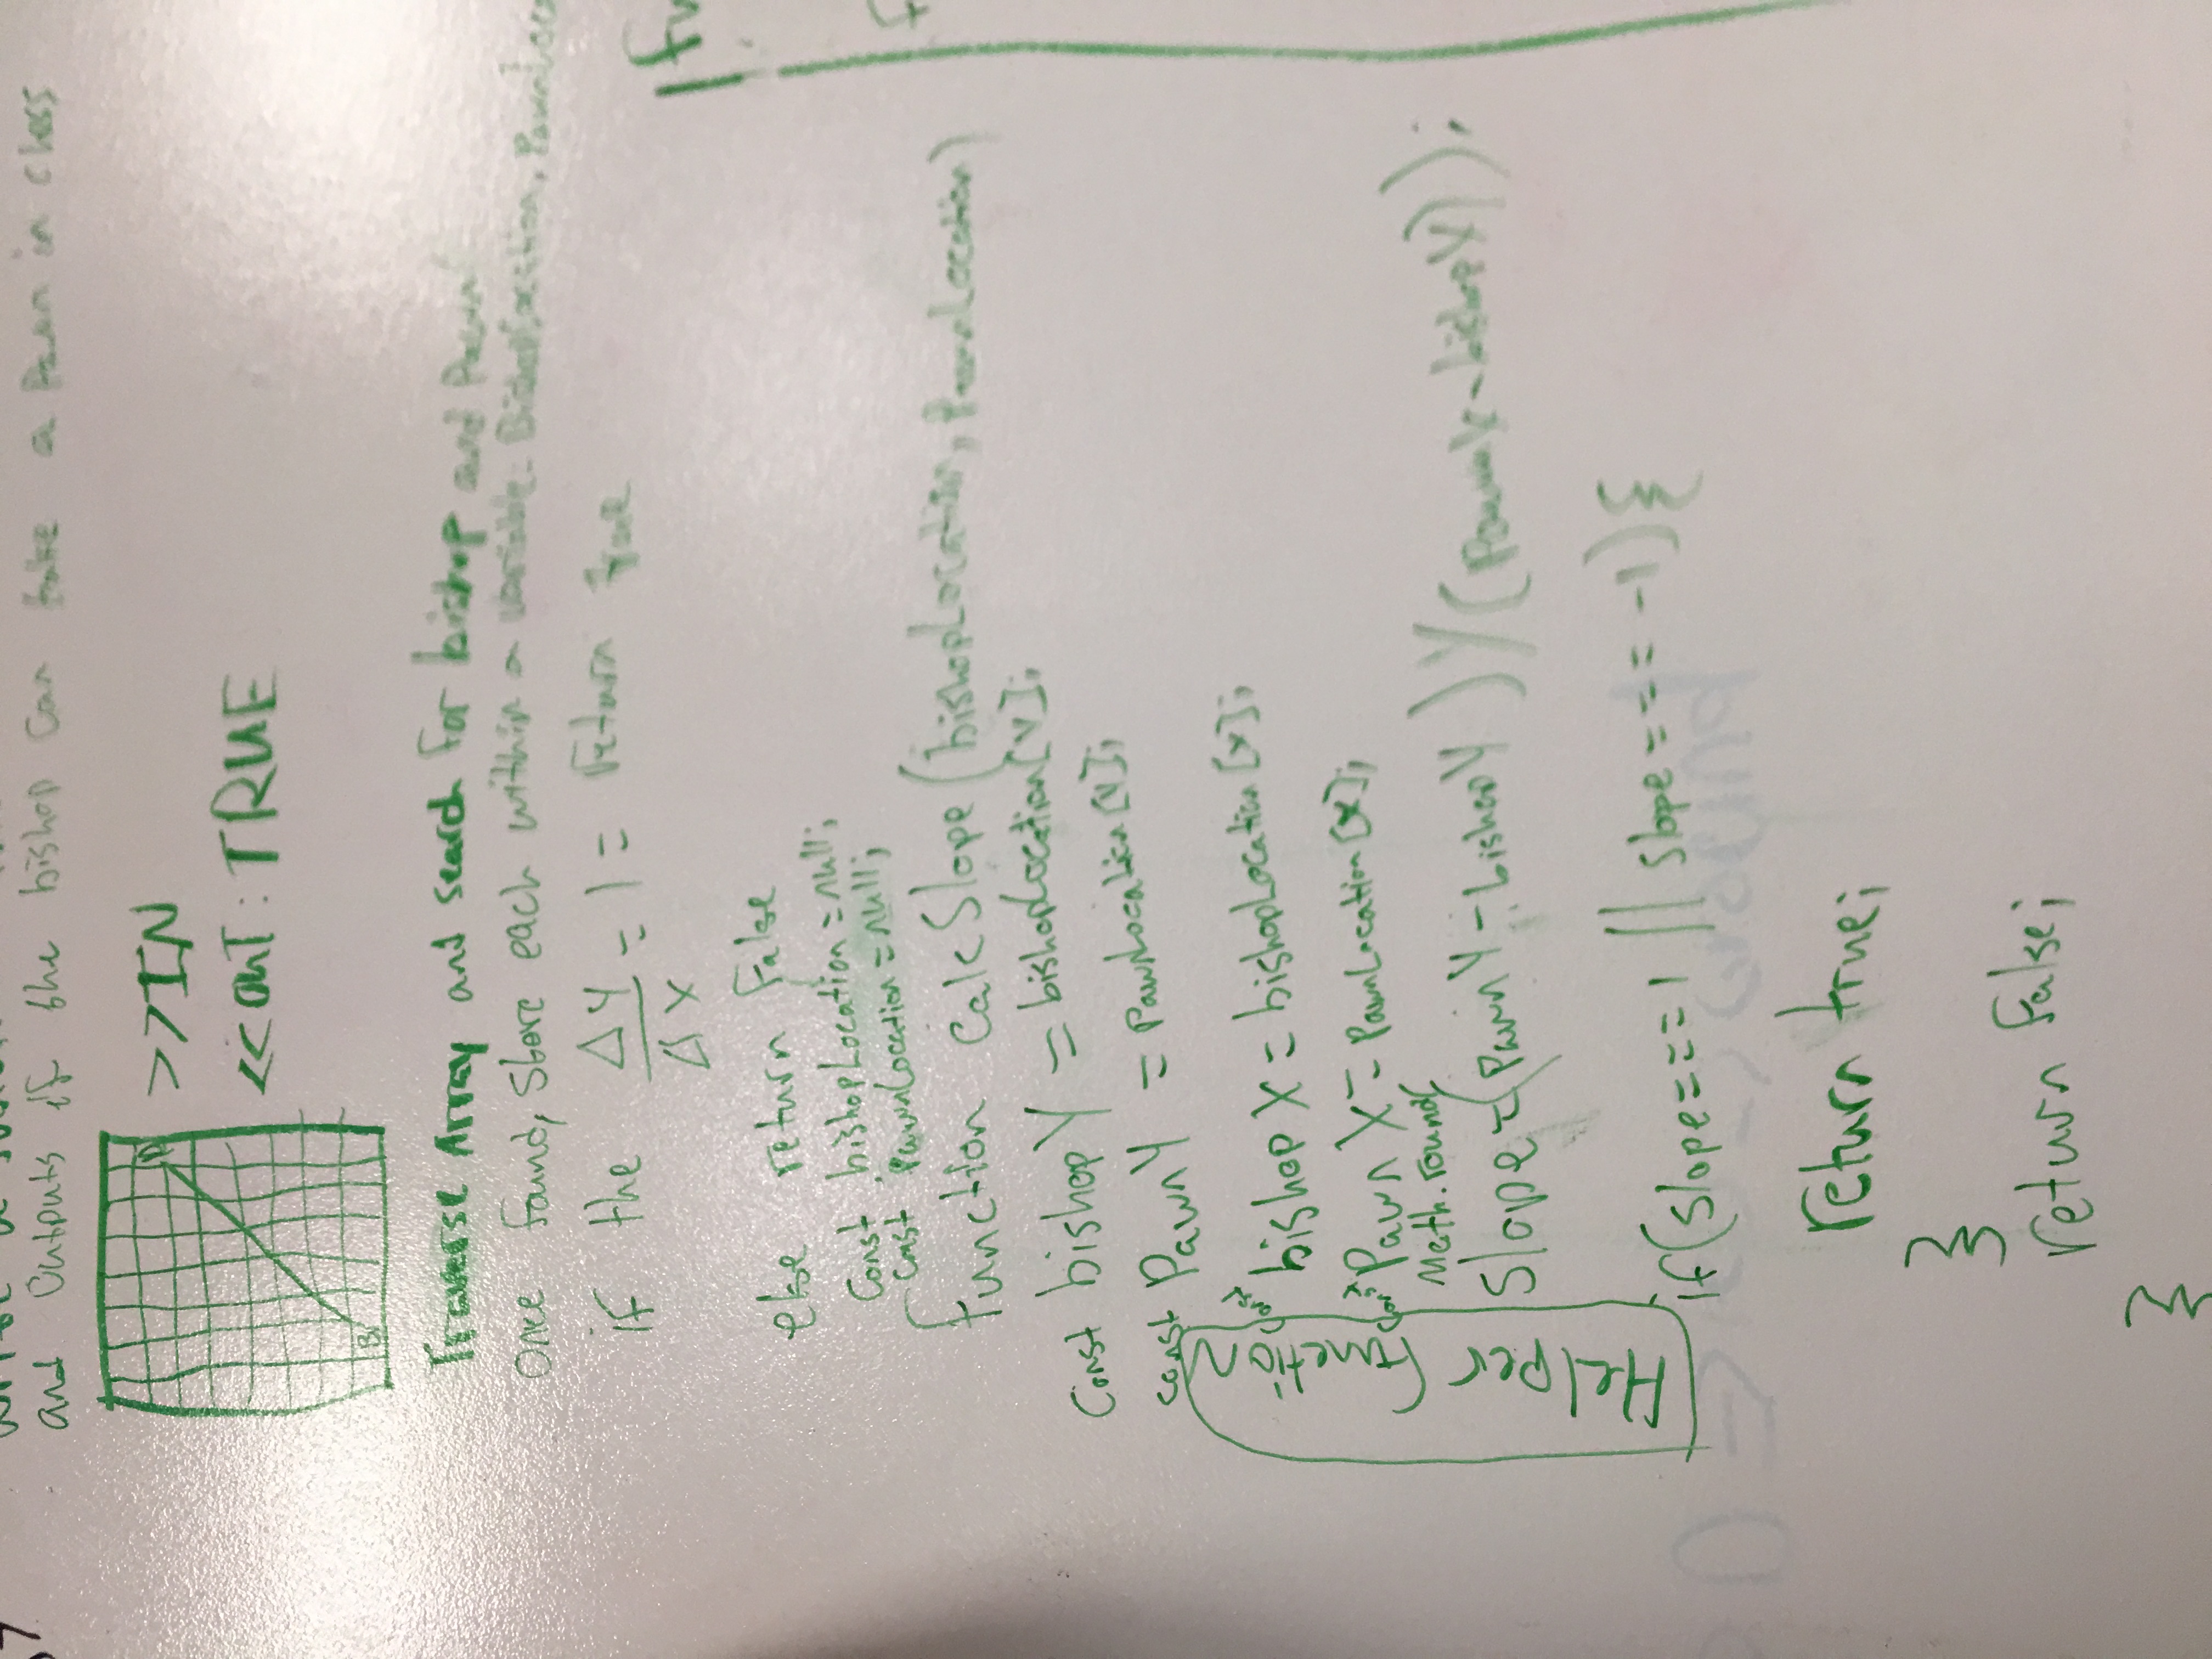 and Outputs if the bishop can take a Pawn in chess
P
>>IN
<<OUT: TRUE
B
Traverse Array and search for bishop and Pawn
Once found, Store each within a variable. BishopLocation, PawnLoc
if the ΔY/ΔX = 1 = return true
else return False
Const bishopLocation = null;
Const PawnLocation = null;
function CalcSlope (bishopLocation, PawnLocation)
Const bishopY = bishopLocation[Y];
const PawnY = PawnLocation[Y];
const bishopX = bishopLocation[x];
const PawnX = PawnLocation[x];
Math.round(
Slope = (PawnY - bishopY) / (PawnX - bishopX));
Helper function
if(slope === 1 || slope === -1){
return true;
}
return False;
}
fu